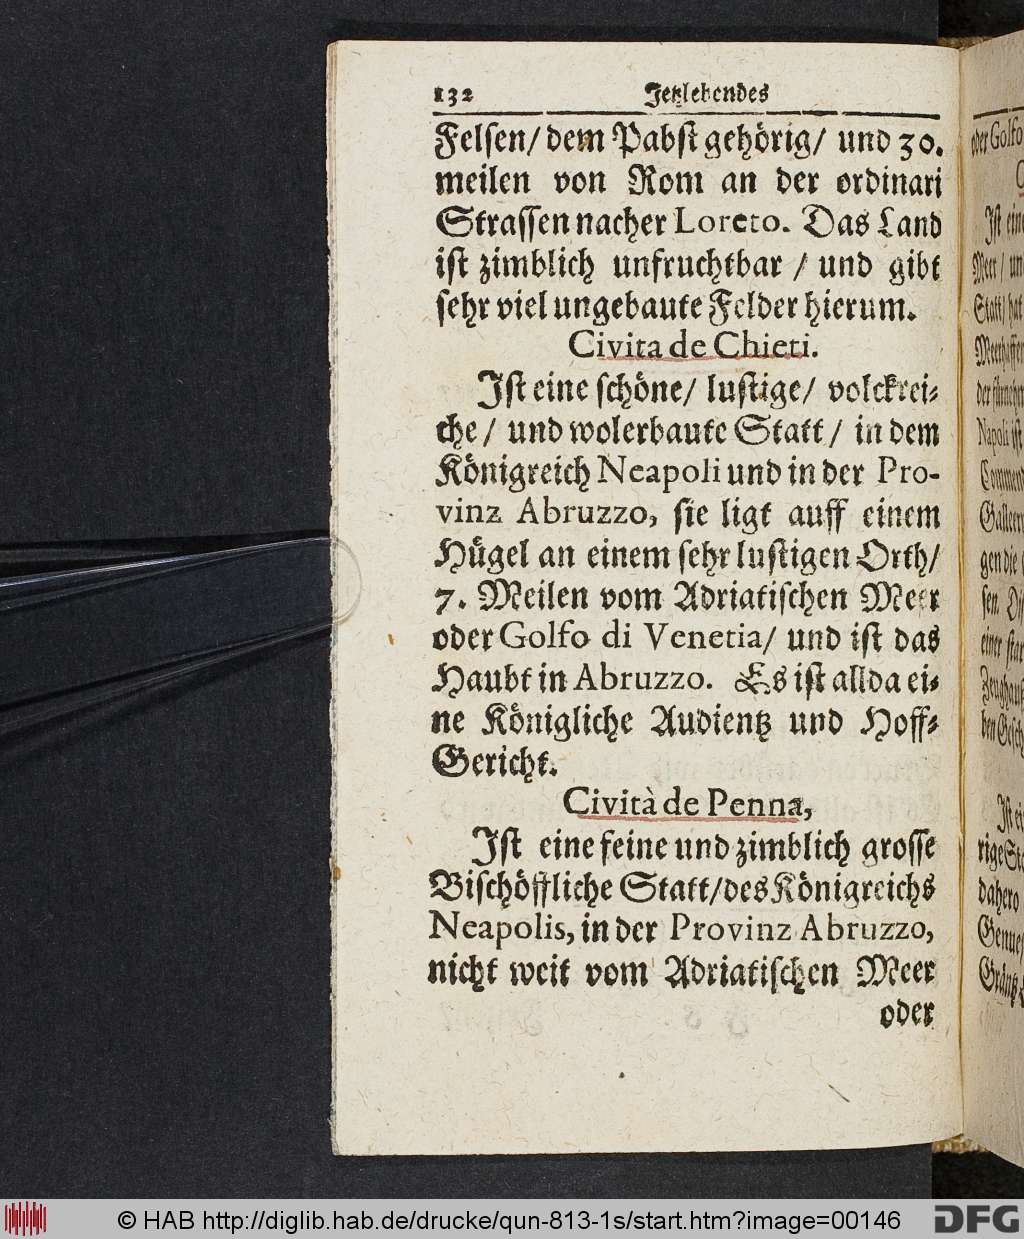 132 Jetzlebendes
Felsen/ dem Pabst gehörig/ und 30.
meilen von Rom an der ordinari
Strassen nacher Loreto. Das Land
ist zimblich unfruchtbar / und gibt
sehr viel ungebaute Felder hierum.
Civita de Chieti.
Ist eine schöne/ lustige/ volckrei-
che/ und wolerbaute Statt/ in dem
Königreich Neapoli und in der Pro-
vinz Abruzzo, sie ligt auff einem
Hügel an einem sehr lustigen Orth/
7. Meilen vom Adriatischen Meer
oder Golfo di Venetia/ und ist das
Haubt in Abruzzo. Es ist allda ei-
ne Königliche Audientz und Hoff-
Gericht.
Cività de Penna,
Ist eine feine und zimblich grosse
Bischöffliche Statt/des Königreichs
Neapolis, in der Provinz Abruzzo,
nicht weit vom Adriatischen Meer
oder
oder Golfo
Ist eine
Meer/ un
Statt/ hat
Napoli ist
gen die
sen.
einer star
dahero
© HAB http://diglib.hab.de/drucke/qun-813-1s/start.htm?image=00146 DFG